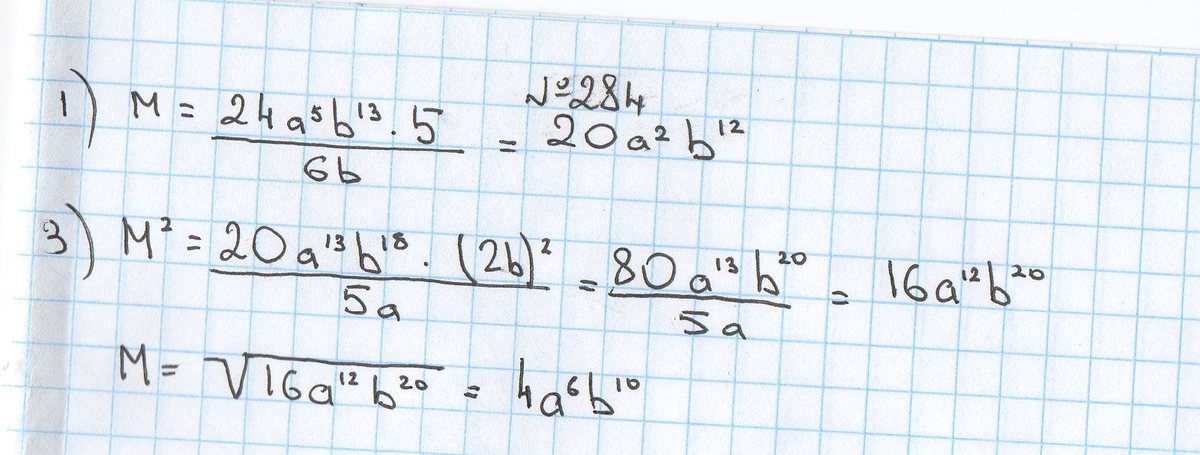 №284
1) M = 24a⁵b¹³ · 5 / 6b = 20a²b¹²
3) M² = 20a¹³b¹⁸ · (2b)² / 5a = 80a¹³b²⁰ / 5a = 16a¹²b²⁰
M = √16a¹²b²⁰ = 4a⁶b¹⁰